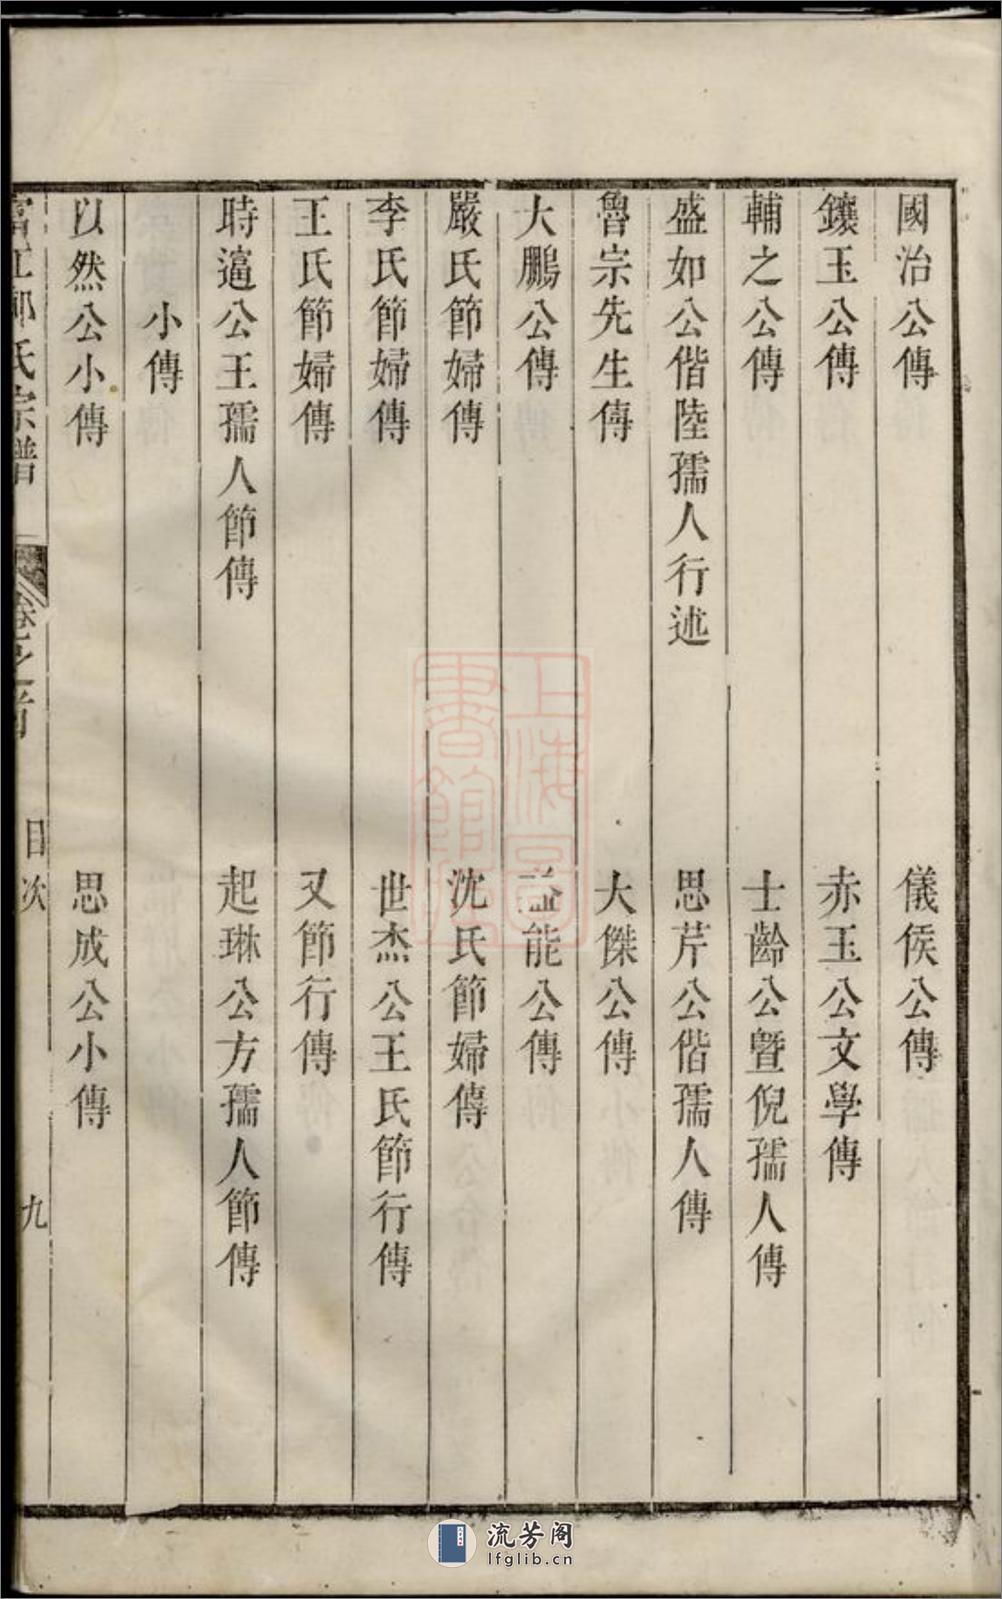 國治公傳　儀矦公傳
鑲玉公傳　赤玉公文學傳
輔之公傳　士齡公暨倪孺人傳
盛如公偕陸孺人行述　思芹公偕孺人傳
魯宗先生傳　大傑公傳
大鵬公傳　益能公傳
嚴氏節婦傳　沈氏節婦傳
李氏節婦傳　世杰公王氏節行傳
王氏節婦傳　又節行傳
時適公王孺人節傳　起琳公方孺人節傳
小傳
以然公小傳　思成公小傳
氏宗譜　卷之首　目次　九
上海圖書館藏
流芳阁
lfglib.cn